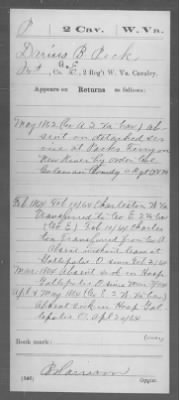 P 2 Cav. W. Va.
Darius B. Peck
Pvt, Co. E, 2 Reg't W. Va. Cavalry.
Appears on
Returns as follows:
May 1862 (Co A 2 Va Cav) Ab
sent on detached ser
vice at Packs Ferry on
New River by order Col
Feb 1864 Feb 19/64 Charleston W Va
Transferred to Co E 2 Va Cav
(Co E) Feb 19/64 Charles
ton Transferred from Co A
Gallipolis O. since Feb 2/64
Mar 1864 Absent sick in Hosp
Gallipolis O since
Apr & May 1864 (Co E 2 W Va Cav)
Absent sick in Hosp Gal
lipolis O. Apl 20/64
Book mark:
(546)
Copyist.